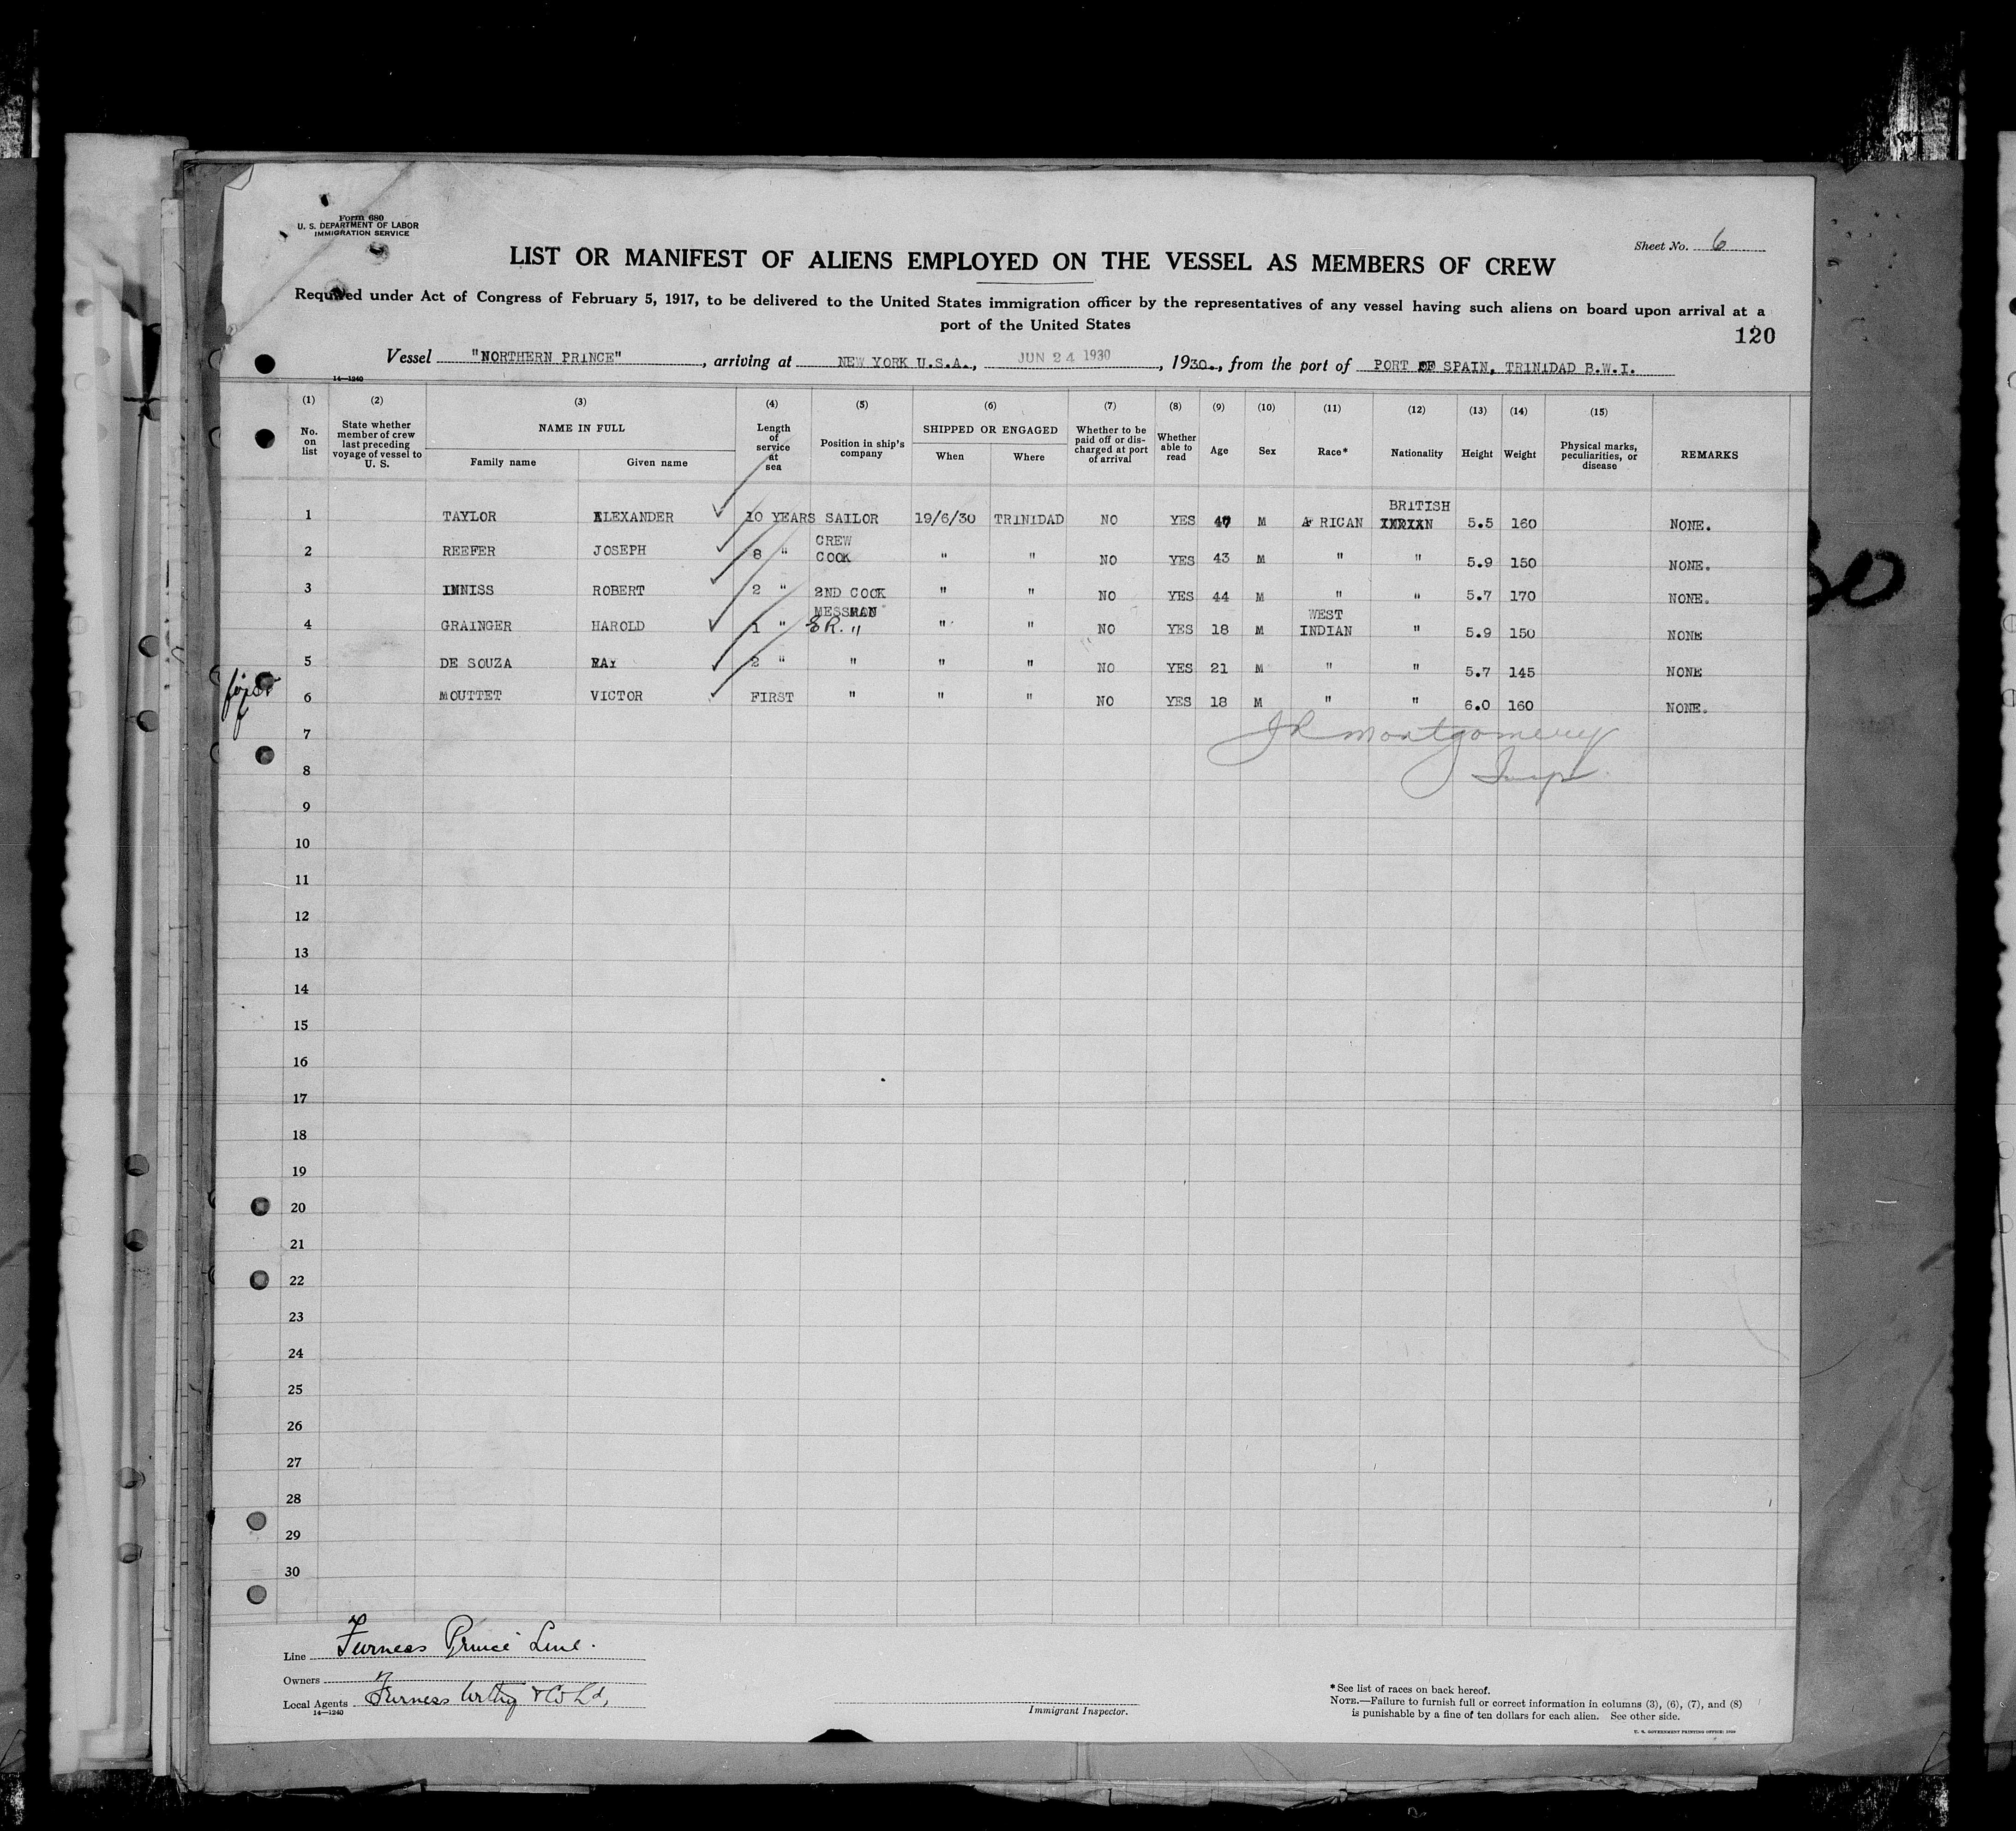 Form 680
U. S. DEPARTMENT OF LABOR
IMMIGRATION SERVICE
Sheet No. 6
LIST OR MANIFEST OF ALIENS EMPLOYED ON THE VESSEL AS MEMBERS OF CREW
Required under Act of Congress of February 5, 1917, to be delivered to the United States immigration officer by the representatives of any vessel having such aliens on board upon arrival at a
port of the United States
120
Vessel "NORTHERN PRINCE", arriving at NEW YORK U.S.A., JUN 24 1930, 1930., from the port of PORT OF SPAIN, TRINIDAD B.W.I.
14—1240
(1) (2) (3) (4) (5) (6) (7) (8) (9) (10) (11) (12) (13) (14) (15)
No. on list State whether member of crew last preceding voyage of vessel to U. S. NAME IN FULL Family name Given name Length of service at sea Position in ship's company SHIPPED OR ENGAGED When Where Whether to be paid off or discharged at port of arrival Whether able to read Age Sex Race* Nationality Height Weight Physical marks, peculiarities, or disease REMARKS
1 TAYLOR ALEXANDER 10 YEARS SAILOR 19/6/30 TRINIDAD NO YES M A RICAN BRITISH 5.5 160 NONE.
2 REEFER JOSEPH 8 " CREW COOK " " NO YES 43 M " " 5.9 150 NONE.
3 INNISS ROBERT 2 " 2ND COOK " " NO YES 44 M " " 5.7 170 NONE.
4 GRAINGER HAROLD 1 " MESSMAN " " NO YES 18 M WEST INDIAN " 5.9 150 NONE
5 DE SOUZA RAY 2 " " " " NO YES 21 M " " 5.7 145 NONE
6 MOUTTET VICTOR FIRST " " " NO YES 18 M " " 6.0 160 NONE.
JR Montgomery
Insp
7
8
9
10
11
12
13
14
15
16
17
18
19
20
21
22
23
24
25
26
27
28
29
30
Line Furness Prince Line.
Owners
Local Agents Furness Withy & Co Ld,
14—1240
Immigrant Inspector.
*See list of races on back hereof.
NOTE.—Failure to furnish full or correct information in columns (3), (6), (7), and (8)
is punishable by a fine of ten dollars for each alien. See other side.